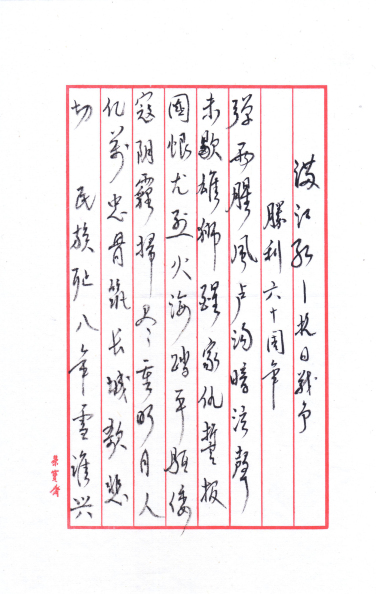 满江红—抗日戰争
勝利六十周年
弹雨腥风卢沟暗泣聲
未歇雄狮醒家仇誓报
國恨尤烈火海踏平驱倭
寇阴霾掃尽重明月人
亿萬忠骨筑长城歌悲
切 民族耻八年雪谁兴
荣宝斋